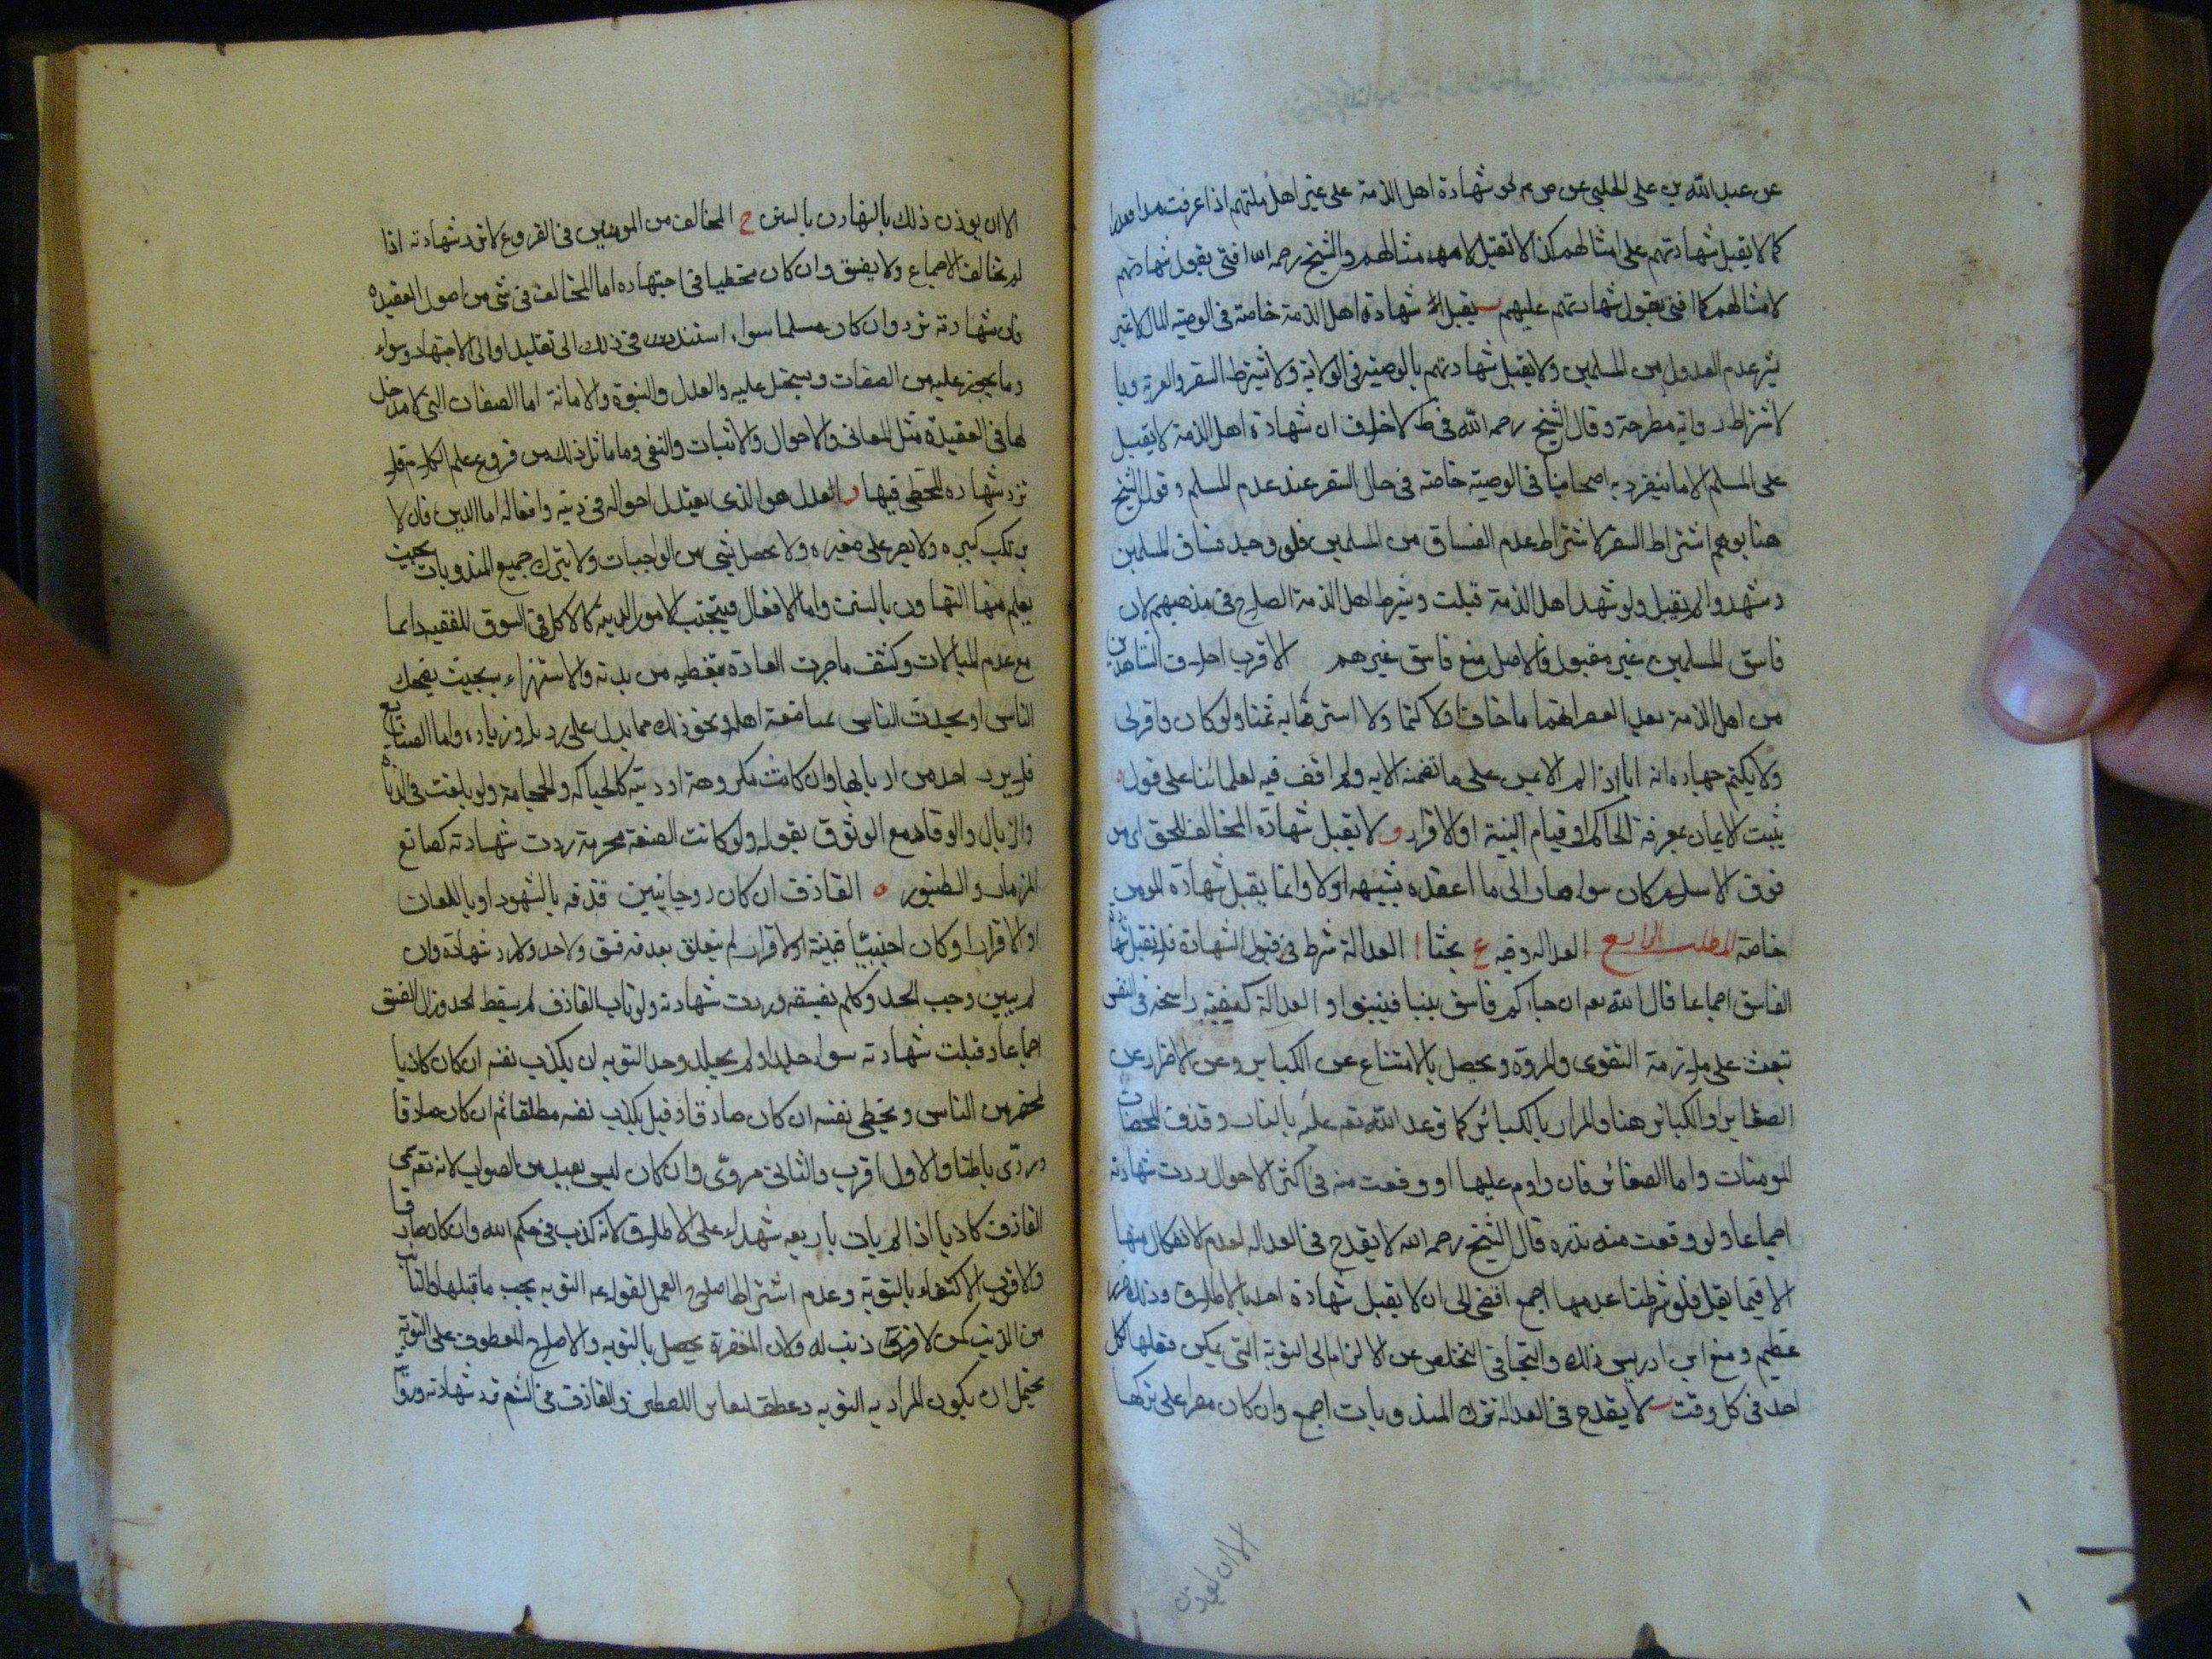 عن عبد الله بن على الحلبى عن شهادة اهل الذمة على غير اهل ملتهم اذا عرفت هذا
كما لا يقبل شهادتهم على امثالهم كذا لا تقبل لامثالهم والشيخ رحمه الله افتى بقبول شهادتهم
لامثالهم كما افتى بقبول شهادتهم عليهم ب يقبل شهادة اهل الذمة خاصة فى الوصية المال لا غير
بشرط عدم العدول من المسلمين ولا يقبل شهادتهم بالوصية فى الولاية ولا يشترط السفر والغربة وبا
لاشتراط رواية مطرحة وقال الشيخ رحمه الله فى ط لا خلاف ان شهادة اهل الذمة لا يقبل
على المسلم الا ما ينفرد به اصحابنا فى الوصية خاصة فى حال السفر عند عدم المسلم وقول الشيخ
هنا يوهم اشتراط السفر لاشتراط عدم الفساق من المسلمين فلو وجد فساق المسلمين
وشهدوا لم يقبل ولو شهد اهل الذمة قبلت وشرط اهل الذمة الصلاح فى مذهبهم لان
فاسق المسلمين غير مقبول والاصل منع فاسق غيرهم الاقرب احلاف الشاهدين
من اهل الذمة بعد العصر انهما ما خانا ولا كتما ولا اشتريا به ثمنا ولو كان ذا قربى
ولا يكتم شهادة الله انا اذا لمن الاثمين على ما تضمنه الايه ولم اقف فيه لعلمائنا على قول ه
يثبت الايمان بمعرفة الحاكم او قيام البينة او الاقرار و لا يقبل شهادة المخالف للحق اى من
فرق الاسلام كان سواء صار الى ما اعتقده بشبهه اولا وانما يقبل شهادة المومن
خاصة المطلب الرابع العداله وفيه ع بحثا ا العدالة شرط فى قبول الشهادة فلا تقبل شهادة
الفاسق اجماعا قال الله تعه ان جاءكم فاسق بنبا فتبينوا و العدالة كيفية راسخة فى النفس
تبعث على ملازمة التقوى والمروة ويحصل بالامتناع عن الكباير وعن الاصرار عن
الصغاير او الكبائر هنا والمراد بالكبائر كلما توعد الله تعه عليه بالنار وقذف المحصنات
المومنات واما الصغائر فان داوم عليها او وقعت منه فى اكثر الاحوال ردت شهادته
اجماعا ولو وقعت منه ندره قال الشيخ رحمه الله لا يقدح فى العداله لعدم الانفكاك منها
الا فيما يقل فلو شرطنا عدمها اجمع افضى الى ان لا يقبل شهادة احد بالاطلاق وذلك ضرر
عظيم ومنع ابن ادريس ذلك والتجا فى التخلص عن الالزام الى التوبة التى يمكن فعلها لكل
احد فى كل وقت ب لا يقدح فى العدالة ترك المندوبات اجمع وان كان مصرا على تركها
الا ان يؤذن
الا ان يوذن ذلك بالتهاون بالسنن ح المخالف من المومنين فى الفروع لا ترد شهادته اذا
لم يخالف الاجماع ولا يفسق وان كان مخطيا فى اجتهاده اما المخالف فى شى من اصول العقيده
فان شهادته ترد وان كان مسلما سواء استند فى ذلك الى تقليد او الى الاجتهاد وسواء
وما يجوز عليه من الصفات ويستحيل عليه والعدل والنبوة والامانة اما الصفات التى لا مدخل
لها فى العقيدة مثل المعانى والاحوال والاثبات والنفى وما ماثل ذلك من فروع علم الكلام فلا
ترد شهاده المخطى فيها و العدل هو الذى يعتدل احواله فى دينه وافعاله اما الدين فان لا
يرتكب كبيره ولا يصر على صغيره ولا يحصل بشى من الواجبات ولا يترك جميع المندوبات بحيث
يعلم منها التهاون بالسنن واما الافعال فيتجنب الامور الدنيه كالاكل فى السوق للفقيه دائما
مع عدم المبالات وكشف ما جرت العادة بتغطيه من بدنه والاستهزاء بحيث يضحك
الناس او يحدث الناس بمباضعة اهله ونحو ذلك مما يدل على رد بل وزياده واما الصنايع
فلا يرد احد من اربابها وان كانت مكروهة او دنية كالحياكه والحجامة ولو بلغت فى الدناه
والزبال والوقاد مع الوثوق بقوله ولو كانت الصنعة محرمة ردت شهادته كصانع
المزمار والطنبور ه القاذف ان كان زوجا فبين قذفه بالشهود او باللعان
او الاقرار او كان اجنبيا فبينة او الاقرار لم يتعلق بعد فه فسق ولا حد ولا رد شهادة وان
لم يبين وجب الحد وحكم بفسقه وردت شهادته ولو تاب القاذف لم يسقط الحد وزال الفسق
اجماعا وقبلت شهادته سواء جلد او لم يجلد وحد التوبه ان يكذب نفسه ان كان كاذبا
بمحضر من الناس ويخطى نفسه ان كان صادقا وقيل يكذب نفسه مطلقا ثم ان كان صادقا
ورى باطنا والاول اقرب والثانى مروى وان كان ليس ببعيد من الصواب لانه تعه سمى
القاذف كاذبا اذا لم يات باربعه شهداء على الاطلاق لانه كذب فى حكم الله وان كان صادقا
والاقرب الاكتفاء بالتوبة وعدم اشتراط اصلاح العمل لقوله عه التوبه يجب ما قبلها والتايب
من الذنب كمن لا ذنب له ولان المغفرة يحصل بالتوبه والاصلاح المعطوف على التوبة
يحتمل ان يكون المراد به التوبه وعطف لتغاير اللفظين ز القاذف فى الشتم ترد شهادته